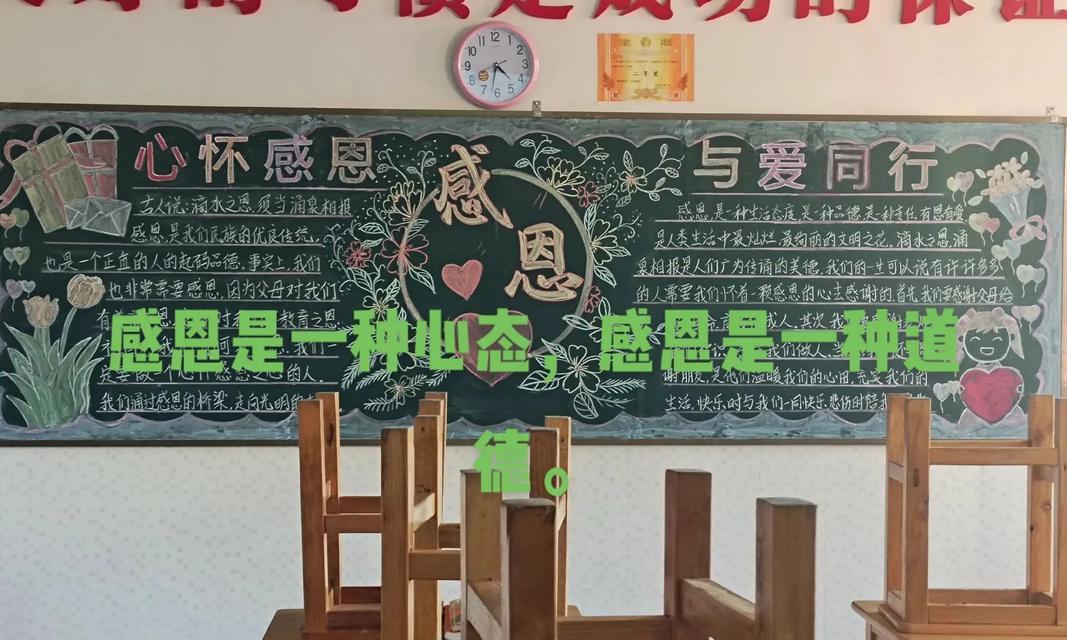 好的习惯是成功的保证
二等奖
心怀感恩
古人说:滴水之恩,须当涌泉相报
感恩,是我们民族的优良传统,
也是一个正直的人的起码品德.事实上,我们
也非常需要感恩,因为父母对我们
教育之恩
我们通过感恩的桥梁,走向光明的
感恩
与爱同行
感恩,是一种生活态度,是一种品德,是一种责任.有恩有爱
是人类生活中最灿烂、最绚丽的文明之花.滴水之恩,涌
泉相报是人们广为传诵的美德.我们的一生可以说有许许多多
的人需要我们怀着一颗感恩的心去感谢的.首先,我们要感谢父母给
成人.其次,我
我们做人.
谢朋友,是他们温暖我们的心田,充实我们的
生活.快乐时与我们一同快乐,悲伤时陪我
感恩是一种心态，感恩是一种道
德。